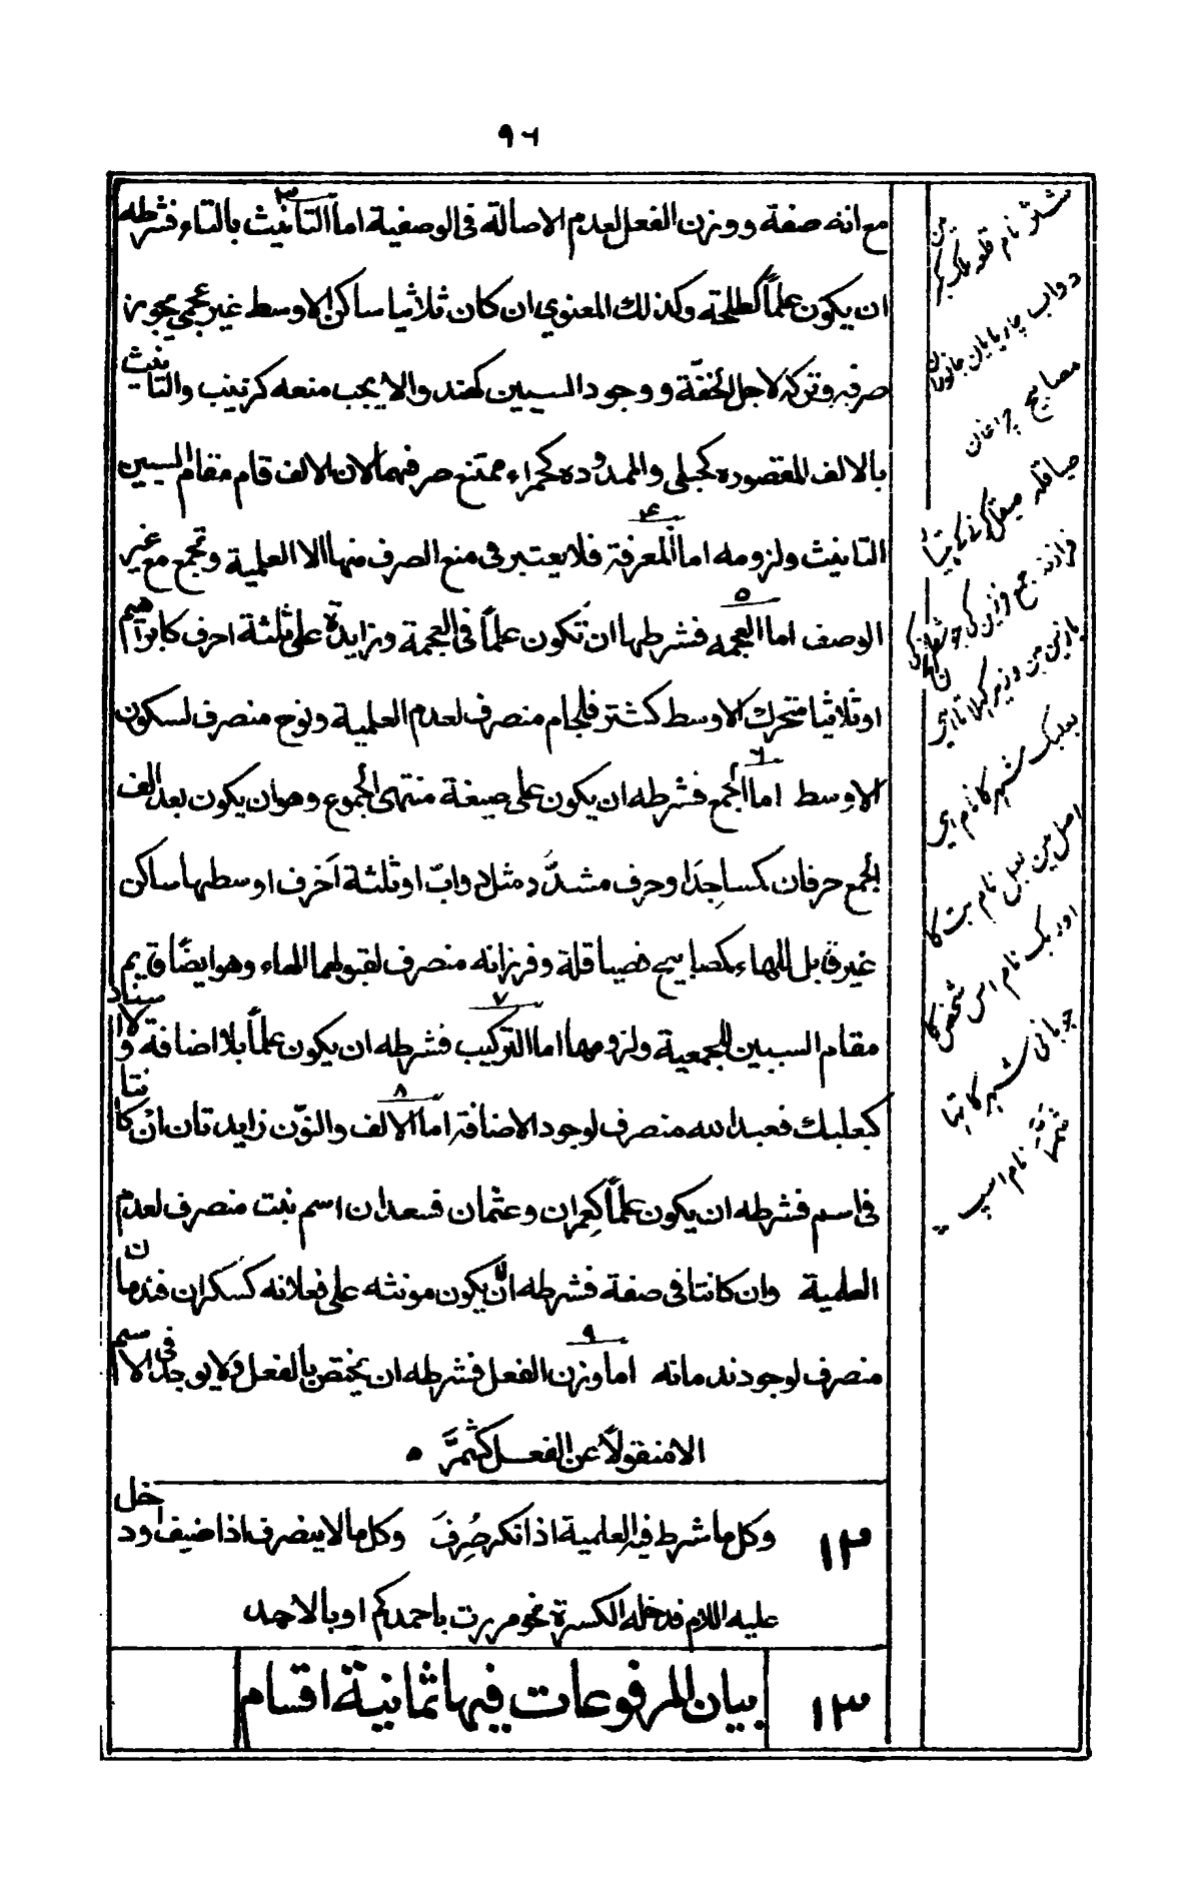 ٩٦
مع انه صفة ووزن الفعل لعدم الاصالة فى الوصفية اما التانيث بالتاء فشرطه
٣
ان يكون علماً كطلحة وكذلك المعنوي ان كان ثلاثيا ساكن الاوسط غير عجمى يجوز
صرفه وتركه لاجل الخفّة ووجود السببين كهند والا يجب منعه كزينب والتانيث
بالالف المقصوره كحبلى والممدوده كحمراء ممتنع صرفهما لان الالف قام مقام السببين
التانيث ولزومه اما المعرفة فلا يعتبر فى منع الصرف منها الا العلمية وتجمع مع غير
٤
الوصف اما العجمه فشرطها ان تكون علماً فى العجمة وزايدة على ثلثة احرف كابراهيم
٥
او ثلاثيا متحرك الاوسط كشتر فلجام منصرف لعدم العلمية ونوح منصرف لسكون
الاوسط اما الجمع فشرطه ان يكون على صيغة منتهى الجموع وهو ان يكون بعد الف
٦
الجمع حرفان كمساجد او حرف مشدّد مثل دوابّ او ثلثة احرف اوسطها ساكن
غير قابل للهاء كمصابيح فصياقلة وفرزانه منصرف لقبولهما الهاء وهو ايضًا قايم
مقام السببين للجمعية ولزومها اما التركيب فشرطه ان يكون علماً بلا اضافة ولا اسناد
٧
كبعلبك فعبد الله منصرف لوجود الاضافة اما الالف والنوّن زايدتان ان كانتا
٨
فى اسم فشرطه ان يكون علماً كعِمران وعثمان فسعدان اسم نبت منصرف لعدم
العلمية وان كانتا فى صفة فشرطه ان لا يكون مونثه على فعلانه كسكران فندمان
منصرف لوجود ندمانه اما وزن الفعل فشرطه ان يختص بالفعل ولا يوجد فى الاسم
٩
الا منقولاً عن الفعل كشمّر ٥
١٢ وكل ما شرط فيه العلمية اذا نكر صُرِفَ وكل ما لا ينصرف اذا اضيف او دخل
عليه اللام فدخله الكسرة نحو مررت باحمدكم او بالاحمد
١٣ بيان المرفوعات فيها ثمانية اقسام
شتر نام قلعه
دواب چارپایان جانوران
مصابيح چراغان
صیاقله صیقل
فرازنه جمع فرزین کی
بعلبک شہر کا نام ہی
اصل مین بعل نام بت کا
اور بک نام اس شخص کا
جو بانی شہر کا تہا
نام اسپ